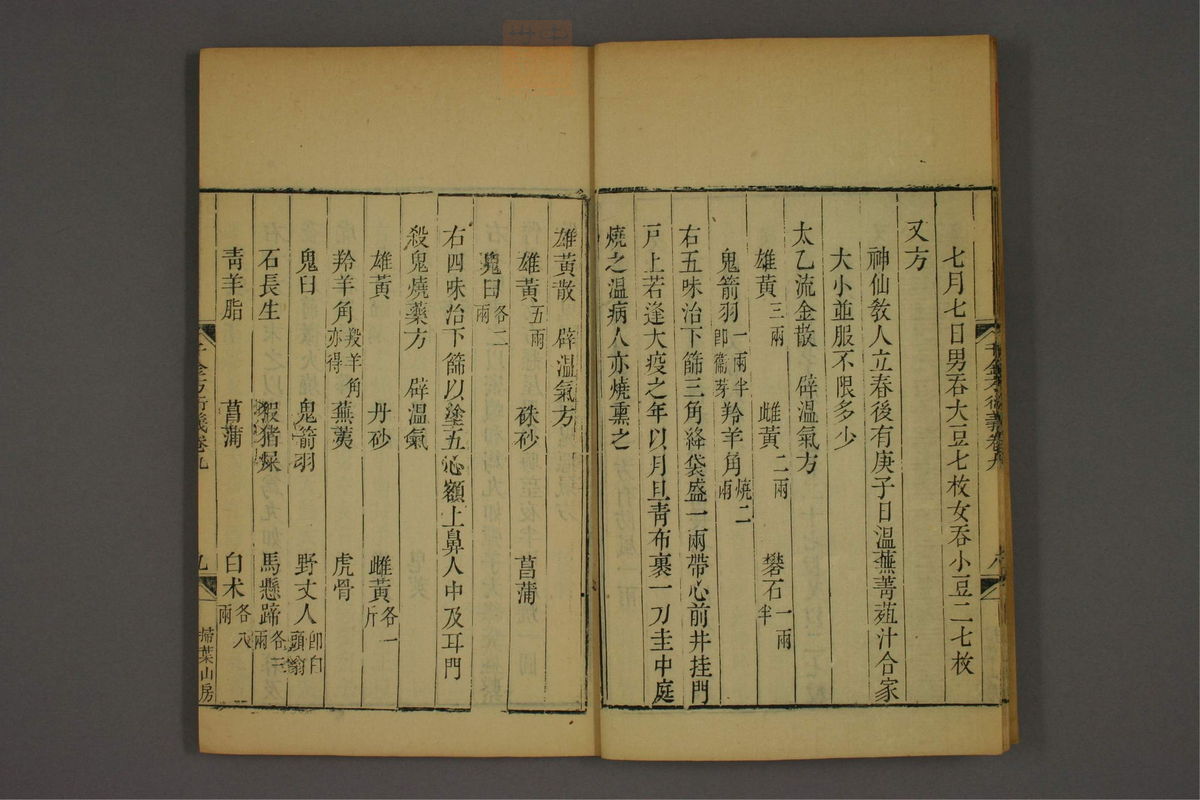 七月七日男吞大豆七枚女吞小豆二七枚
又方
神仙教人立春後有庚子日溫蕪菁葅汁合家
大小並服不限多少
太乙流金散 辟溫氣方
雄黃三兩 雌黃二兩 礬石一兩半
鬼箭羽一兩半即衞芽 羚羊角燒二兩
右五味治下篩三角絳袋盛一兩帶心前井挂門
戸上若逢大疫之年以月旦靑布裹一刀圭中庭
燒之溫病人亦燒熏之
雄黃散 辟溫氣方
雄黃五兩 硃砂 菖蒲
鬼臼各二兩
右四味治下篩以塗五心額上鼻人中及耳門
殺鬼燒藥方 辟溫氣
雄黃 丹砂 雌黃各一斤
羚羊角羖羊角亦得 蕪荑 虎骨
鬼臼 鬼箭羽 野丈人即白頭翁
石長生 猳猪屎 馬懸蹄各三兩
靑羊脂 菖蒲 白朮各八兩
千金方衍義卷九
九
掃葉山房